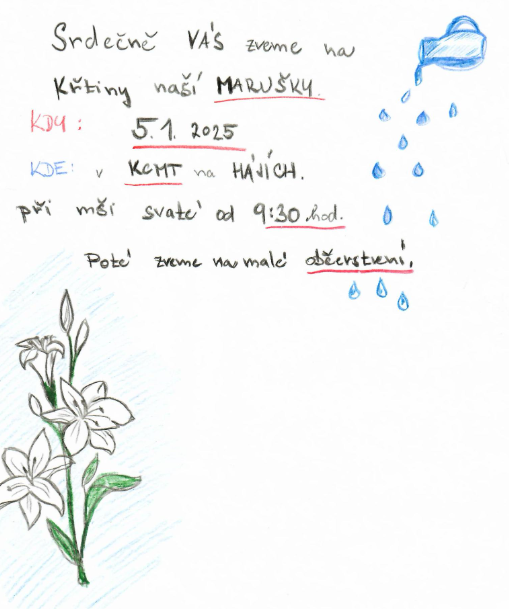 Srdečně VÁS zveme na
Křtiny naší MARUŠKY.
KDY: 5.1. 2025
KDE: v KCMT na HÁJÍCH.
při mši svaté od 9:30 hod.
Poté zveme na malé občerstvení.